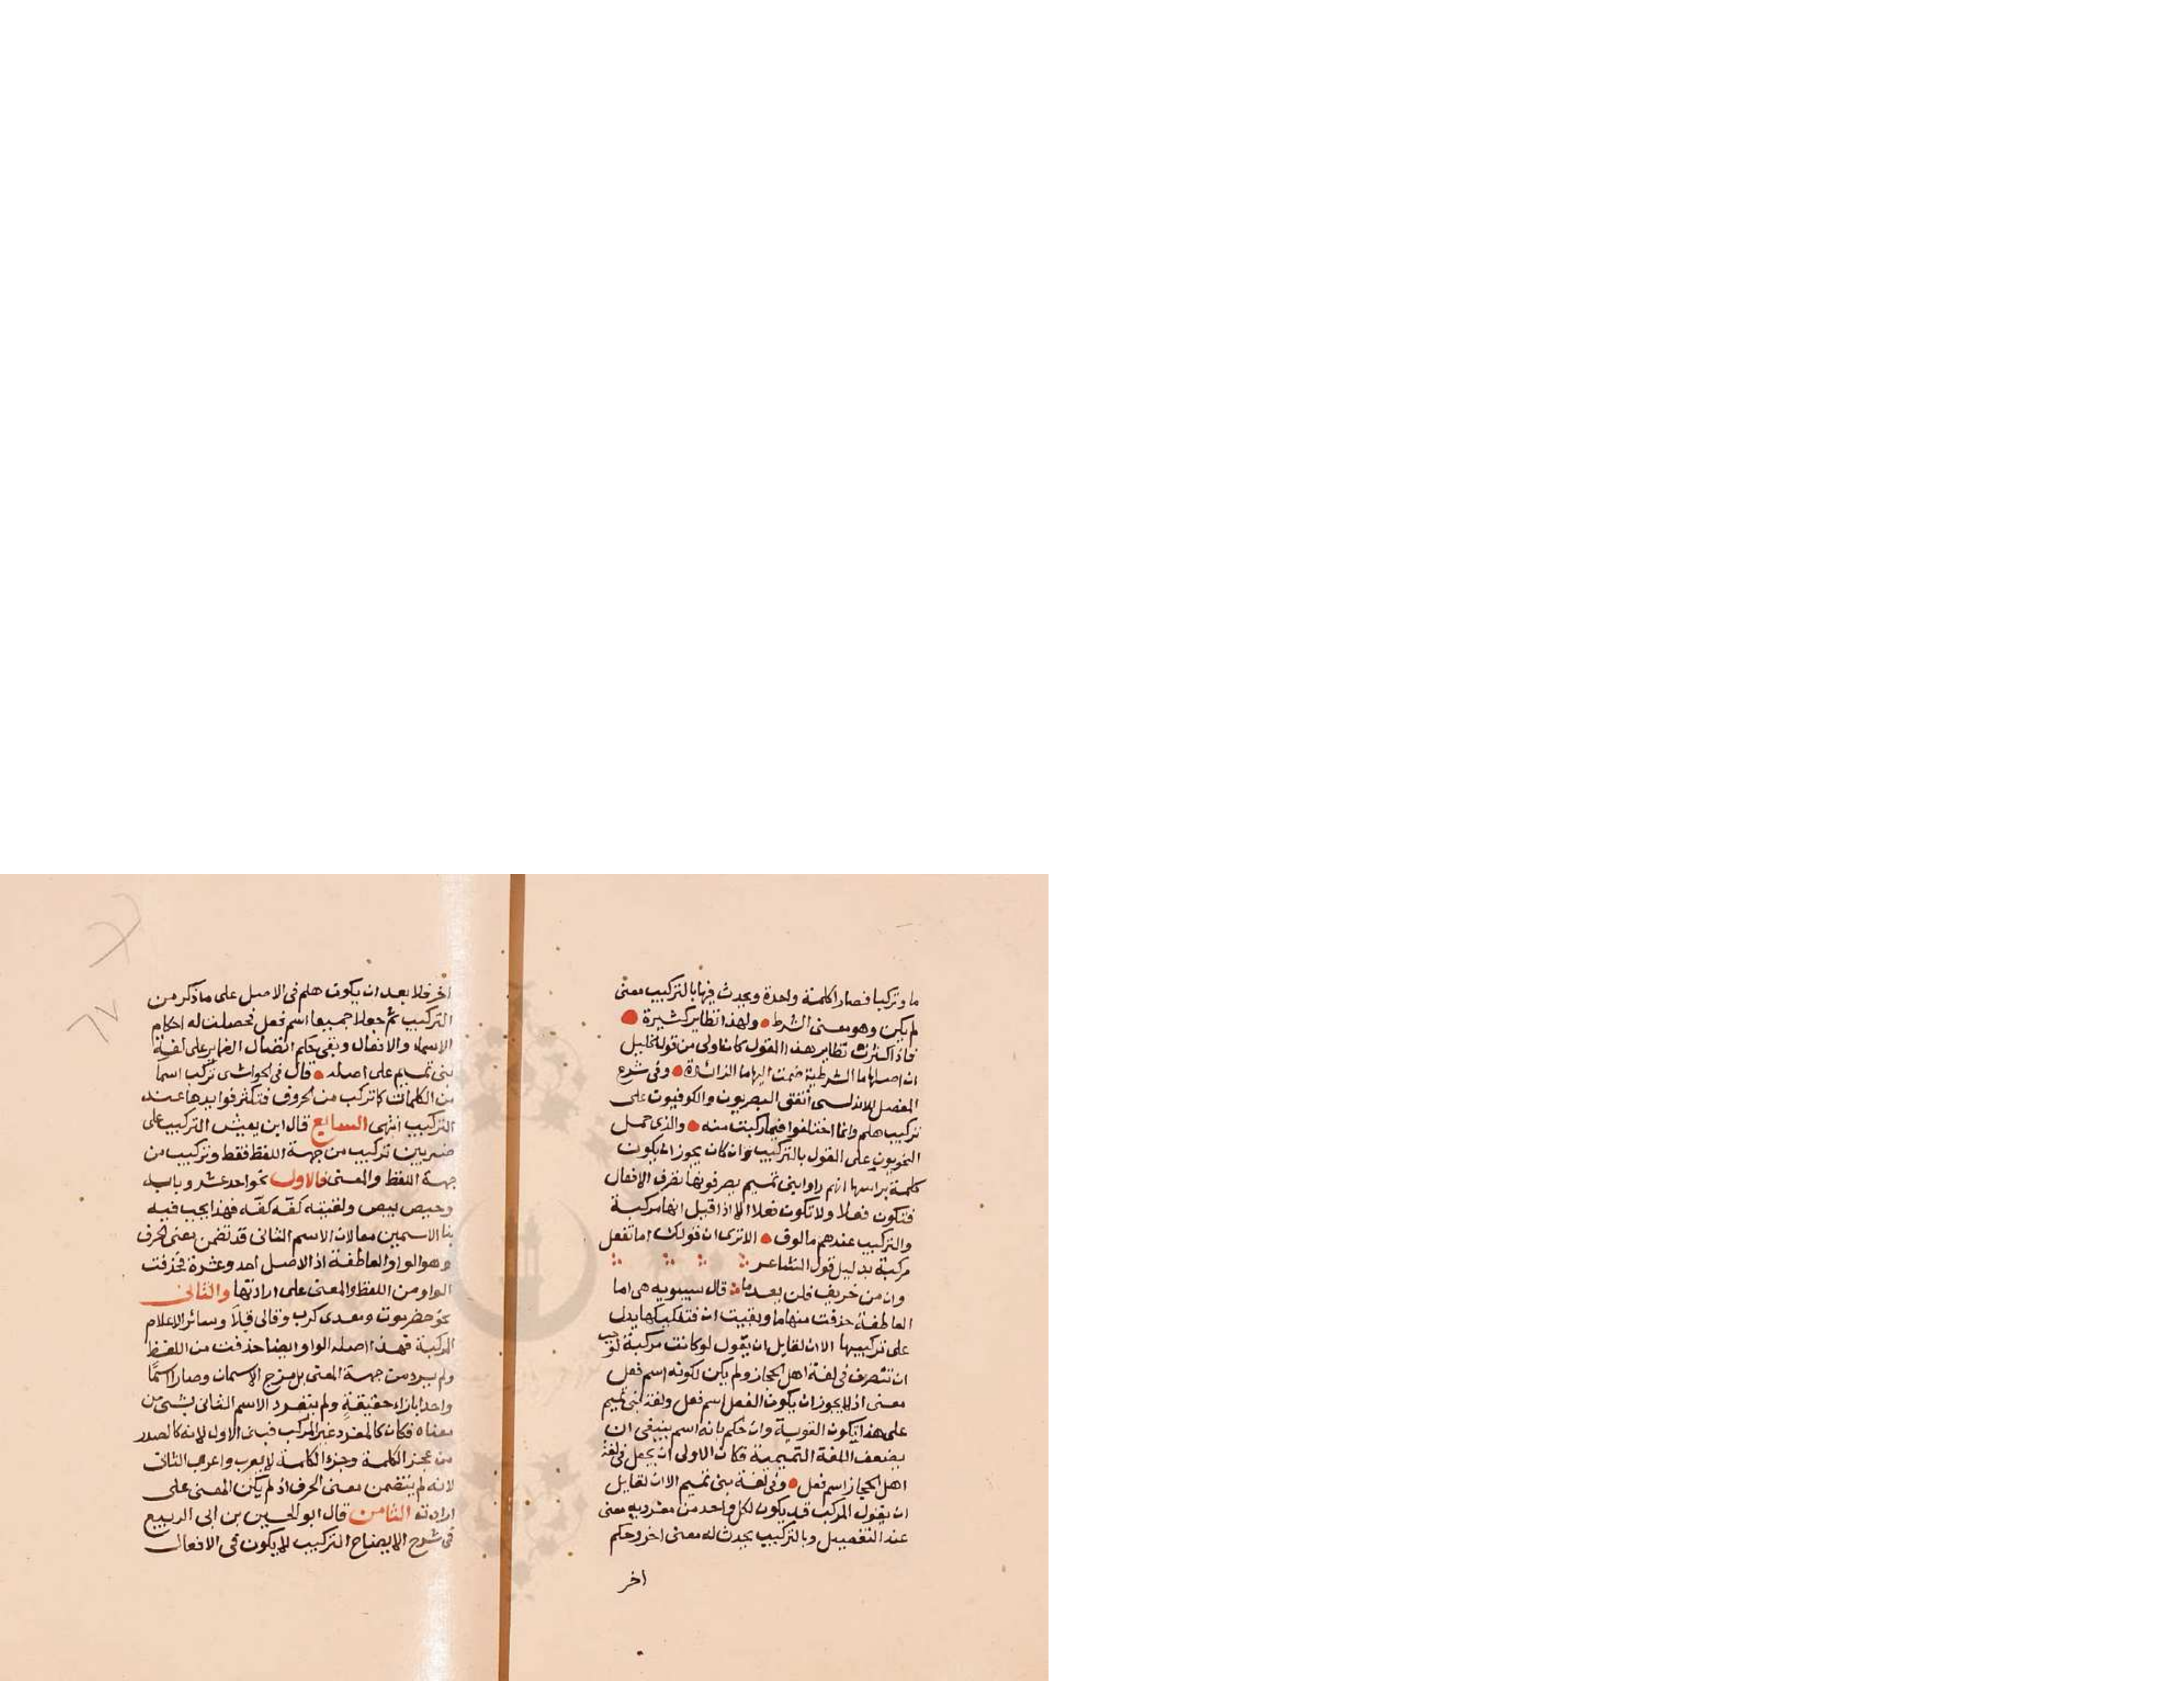 ما وتركبا فصارا كلمة واحدة ويحدث فيها بالتركيب معنى
لم يكن وهو معنى الشرط ولهذا نظاير كثيرة
فاذا كثرت نظاير هذا القول كان اولى من قول الخليل
ان اصلها ما الشرطية ضمت اليها ما الزائدة وفى شرح
المفصل للاندلسى اتفق البصريون والكوفيون على
تركيب هلم وانما اختلفوا فيما ركبت منه والذى حمل
النحويون على القول بالتركيب وان كان يجوز ان يكون
كلمة براسها انهم راوا بنى تميم يصرفونها تصرف الافعال
فتكون فعلا ولا تكون فعلا الا اذا قيل انها مركبة
والتركيب عندهم مالوف الا ترى ان قولك اما تفعل
مركبة بدليل قول الشاعر
وان من خريف فلن يعدما قال سيبويه هى اما
العاطفة حذفت منها ما وبقيت ان فتفكيكها يدل
على تركيبها الا ان لقايل ان يقول لو كانت مركبة لوجب
ان تتصرف فى لغة اهل الحجاز ولم يكن لكونه اسم فعل
معنى اذ لا يجوز ان يكون الفعل اسم فعل ولغة بنى تميم
على هذا تكون القوية وان حكم بانه اسم ينبغى ان
يضعف اللغة التميمية فكان الاولى ان يجعل فى لغة
اهل الحجاز اسم فعل وفى لغة بنى تميم الا ان لقايل
ان يقول المركب قد يكون لكل واحد من مفرديه معنى
عند التفصيل وبالتركيب يحدث له معنى اخر وحكم
اخر
اخر فلا بعد ان يكون هلم فى الاصل على ما ذكر من
التركيب ثم جعلا جميعا اسم فعل فحصلت له احكام
الاسماء والافعال وبقى حكم اتصال الضماير على لغة
بنى تميم على اصله قال فى الحواشى تركب اسما
من الكلمات كما تركب من الحروف فتكثر فوايدها عند
التركيب انتهى السابع قال ابن يعيش التركيب على
ضربين تركيب من جهة اللفظ فقط وتركيب من
جهة اللفظ والمعنى فالاول نحو احد عشر وبابه
وحيص بيص ولقيته كفة كفة فهذا يجب فيه
بنا الاسمين معا لان الاسم الثانى قد تضمن معنى الحرف
وهو الواو العاطفة اذ الاصل احد وعشرة فحذفت
الواو من اللفظ والمعنى على ارادتها والثانى
نحو حضرموت ومعدى كرب وقالى قلا وسائر الاعلام
المركبة فهذا اصله الواو ايضا حذفت من اللفظ
ولم يرد من جهة المعنى بل مزج الاسمان وصارا اسما
واحدا بازاء حقيقة ولم ينفرد الاسم الثانى بشى من
معناه فكان كالمفرد غير المركب فبنى الاول لانه كالصدر
من عجز الكلمة وجزء الكلمة لا يعرب واعرب الثانى
لانه لم يتضمن معنى الحرف اذ لم يكن المعنى على
ارادته الثامن قال ابو الحسين بن ابى الربيع
فى شرح الايضاح التركيب لا يكون فى الافعال